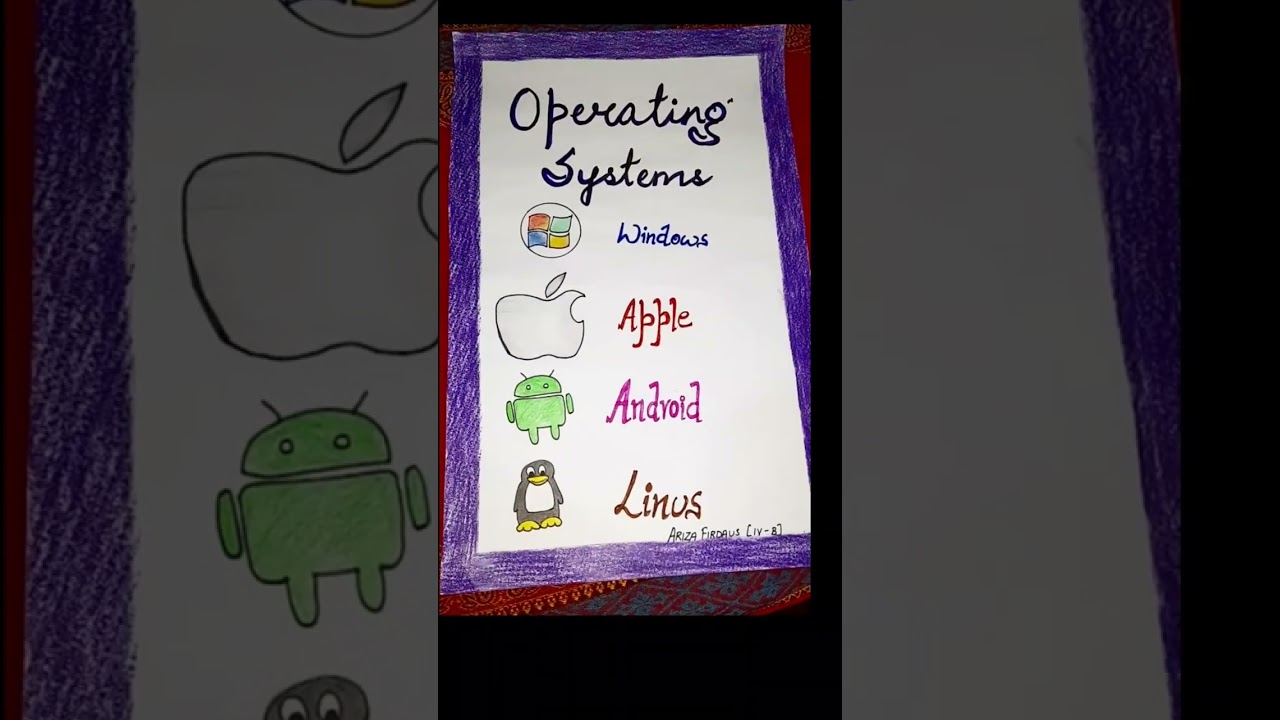 Operating
Systems
Windows
Apple
Android
Linus
ARIZA FIRDAUS [IV-B]